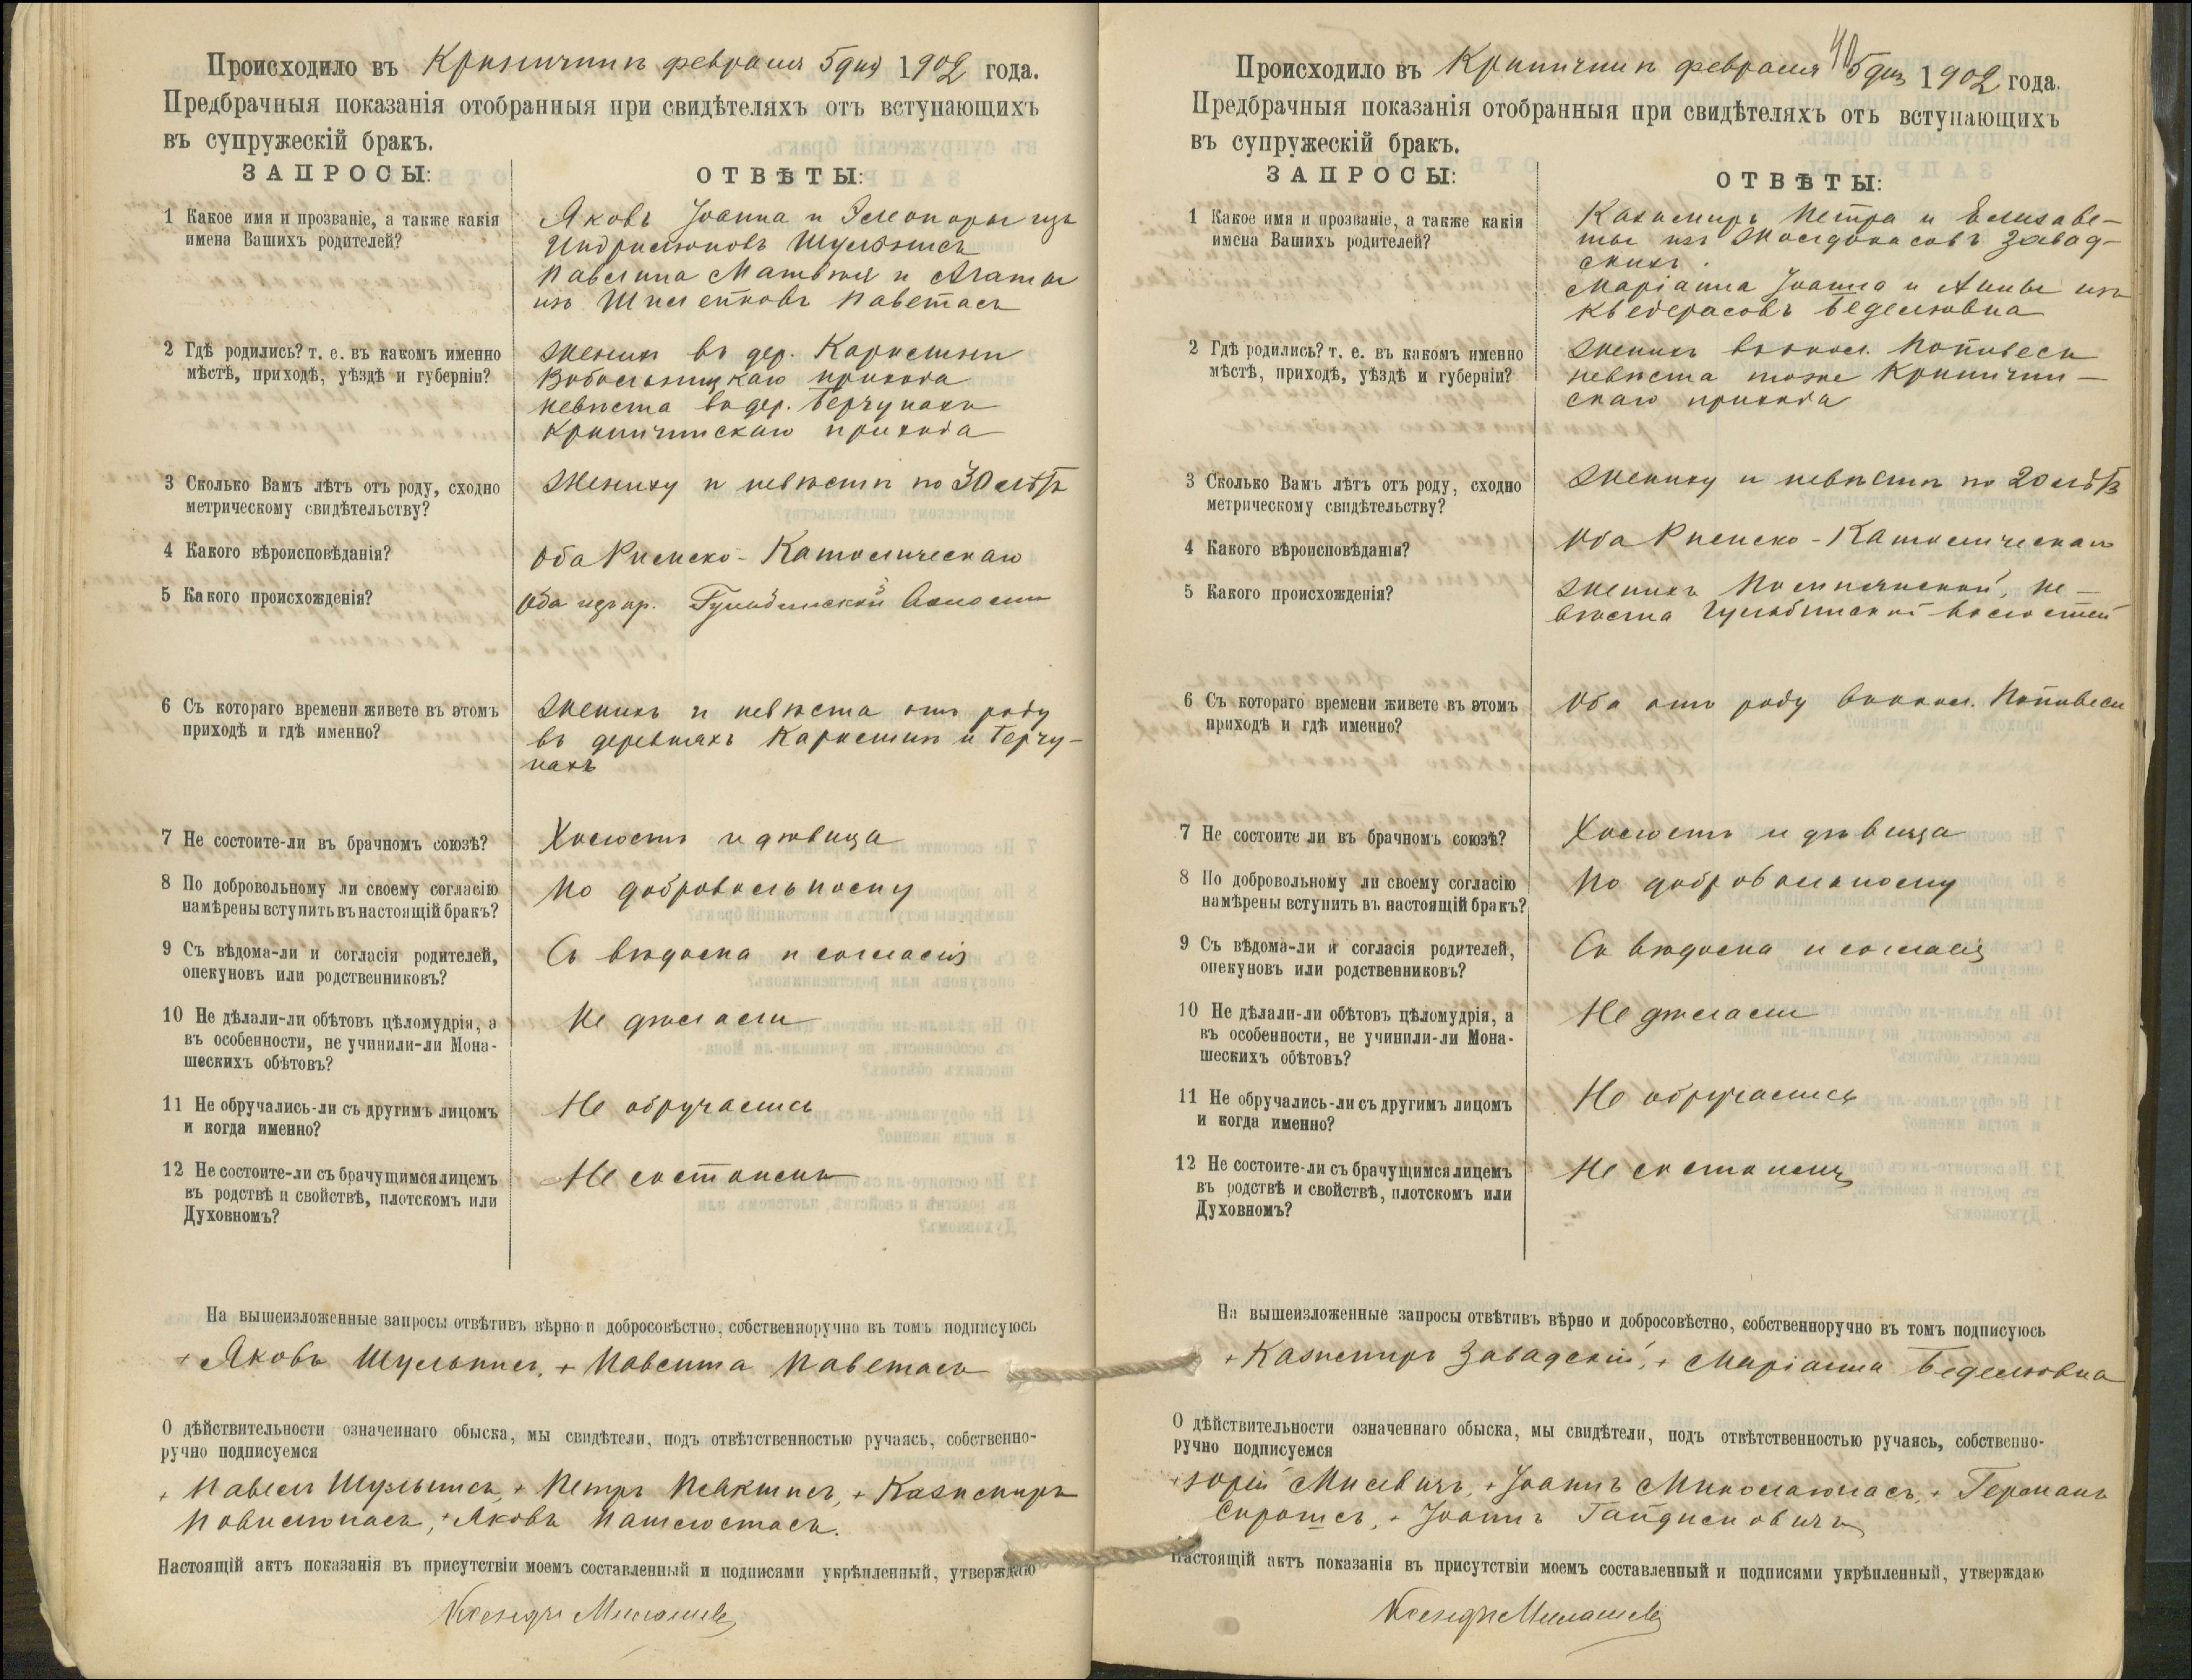 Происходило въ Криничинѣ февраля 5 дня 1902 года.
Предбрачныя показанія отобранныя при свидѣтеляхъ отъ вступающихъ
въ супружескій бракъ.
ЗАПРОСЫ:
ОТВѢТЫ:
1 Какое имя и прозваніе, а также какія
имена Вашихъ родителей?
Яковъ Іоанна и Элеоноры изъ
Индрилюновъ Шульнисъ
Павлина Матвѣя и Агаты
изъ Паветасъ
2 Гдѣ родились? т. е. въ какомъ именно
мѣстѣ, приходѣ, уѣздѣ и губерніи?
Женихъ въ дер.
Вобольницкаго прихода
невѣста въ дер. Герчунахъ
Криничинскаго прихода
3 Сколько Вамъ лѣтъ отъ роду, сходно
метрическому свидѣтельству?
Жениху и невѣстѣ по 30 лѣтъ
4 Какого вѣроисповѣданія?
Оба Римско-Католическаго
5 Какого происхожденія?
Оба изъ кр. Гульбинской Волости
6 Съ котораго времени живете въ этомъ
приходѣ и гдѣ именно?
Женихъ и невѣста отъ роду
въ деревняхъ и Герчу-
нахъ
7 Не состоите-ли въ брачномъ союзѣ?
Холостъ и дѣвица
8 По добровольному ли своему согласію
намѣрены вступить въ настоящій бракъ?
По добровольному
9 Съ вѣдома-ли и согласія родителей,
опекуновъ или родственниковъ?
Съ вѣдома и согласія
10 Не дѣлали-ли обѣтовъ цѣломудрія, а
въ особенности, не учинили-ли Мона-
шескихъ обѣтовъ?
Не дѣлали
11 Не обручались-ли съ другимъ лицомъ
и когда именно?
Не обручались
12 Не состоите-ли съ брачущимся лицемъ
въ родствѣ и свойствѣ, плотскомъ или
Духовномъ?
Не состоимъ
На вышеизложенные запросы отвѣтивъ вѣрно и добросовѣстно, собственноручно въ томъ подписуюсь
+ Яковъ Шульнисъ, + Павлина Паветасъ
О дѣйствительности означеннаго обыска, мы свидѣтели, подъ отвѣтственностью ручаясь, собственно-
ручно подписуемся
+ Павелъ Шульнисъ, + Петръ + Казимиръ
+ Яковъ
Настоящій актъ показанія въ присутствіи моемъ составленный и подписями укрѣпленный, утверждаю
Ксендзъ
40
Происходило въ Криничинѣ февраля 5 дня 1902 года.
Предбрачныя показанія отобранныя при свидѣтеляхъ отъ вступающихъ
въ супружескій бракъ.
ЗАПРОСЫ:
ОТВѢТЫ:
1 Какое имя и прозваніе, а также какія
имена Вашихъ родителей?
Казимиръ Петра и Елизаве-
ты изъ Завад-
скихъ.
Маріанна Іоанна и Анны изъ
Кведерасовъ Беделювна
2 Гдѣ родились? т. е. въ какомъ именно
мѣстѣ, приходѣ, уѣздѣ и губерніи?
Женихъ
невѣста тоже Криничин-
скаго прихода
3 Сколько Вамъ лѣтъ отъ роду, сходно
метрическому свидѣтельству?
Жениху и невѣстѣ по 20 лѣтъ
4 Какого вѣроисповѣданія?
Оба Римско-Католическаго
5 Какого происхожденія?
Женихъ не-
вѣста Гульбинской волостей
6 Съ котораго времени живете въ этомъ
приходѣ и гдѣ именно?
Оба отъ роду
7 Не состоите ли въ брачномъ союзѣ?
Холостъ и дѣвица
8 По добровольному ли своему согласію
намѣрены вступить въ настоящій бракъ?
По добровольному
9 Съ вѣдома-ли и согласія родителей,
опекуновъ или родственниковъ?
Съ вѣдома и согласія
10 Не дѣлали-ли обѣтовъ цѣломудрія, а
въ особенности, не учинили-ли Мона-
шескихъ обѣтовъ?
Не дѣлали
11 Не обручались-ли съ другимъ лицомъ
и когда именно?
Не обручались
12 Не состоите-ли съ брачущимся лицемъ
въ родствѣ и свойствѣ, плотскомъ или
Духовномъ?
Не состоимъ
На вышеизложенные запросы отвѣтивъ вѣрно и добросовѣстно, собственноручно въ томъ подписуюсь
+ Казимиръ Завадскій, + Маріанна Беделювна
О дѣйствительности означеннаго обыска, мы свидѣтели, подъ отвѣтственностью ручаясь, собственно-
ручно подписуемся
+ Юрій Мисевичъ, + Іоаннъ Миколаюнасъ, + Германъ
+ Іоаннъ Гайдимовичъ
Настоящій актъ показанія въ присутствіи моемъ составленный и подписями укрѣпленный, утверждаю
Ксендзъ